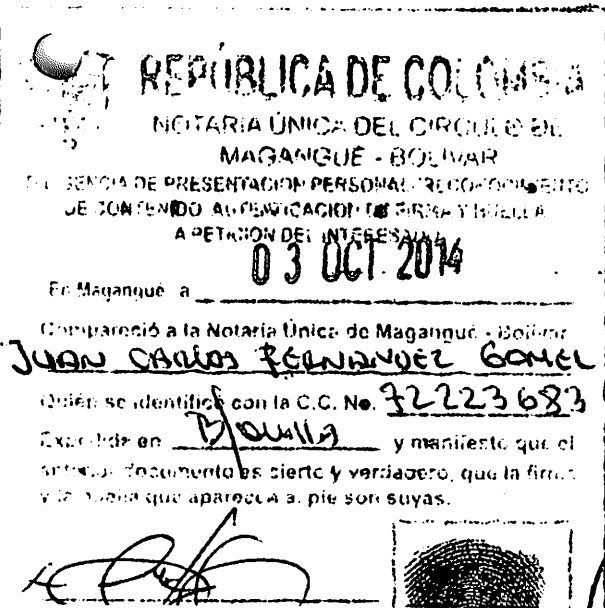 REPÚBLICA DE COLOMBIA
NOTARIA ÚNICA DEL CIRCULO DE
MAGANGUÉ - BOLIVAR
DILIGENCIA DE PRESENTACION PERSONAL RECONOCIMIENTO
DE CONTENIDO AUTENTICACION DE FIRMA Y HUELLA
A PETICION DEL INTERESADO
03 OCT. 2014
En Magangué a
Compareció a la Notaría Única de Magangué - Bolívar
JUAN CARLOS FERNANDEZ GOMEZ
Quién se identificó con la C.C. No. 72223683
Expedida en B/quilla y manifiesto que el
anterior documento es cierto y verdadero, que la firma
y la huella que aparecen al pie son suyas.